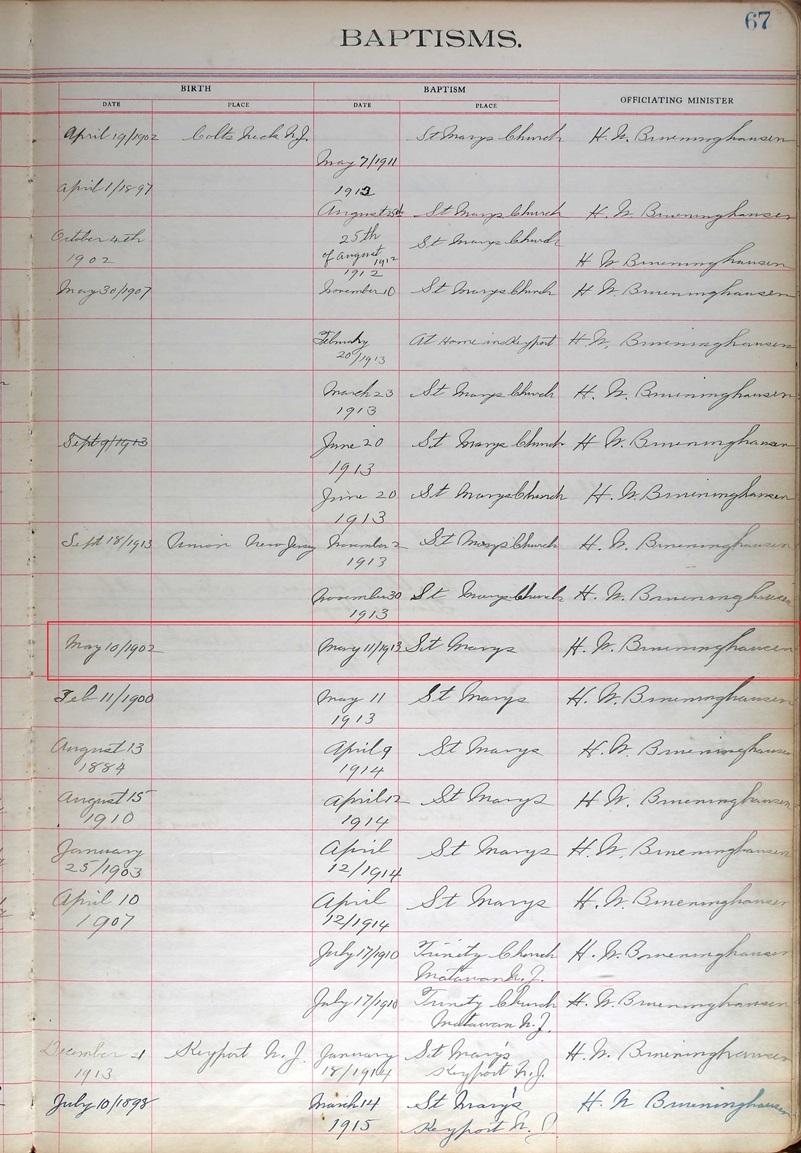 67
BAPTISMS.
BIRTH BAPTISM OFFICIATING MINISTER
DATE PLACE DATE PLACE
April 19/1902 Colts Neck N.J. May 7/1911 St Marys Church H. W. Brueninghausen
April 1/1897 1912
August 25th St Marys Church H. W Brueninghausen
October 4th 25th St Marys Church
1902 of August 1912 H W Brueninghausen
1912
May 30/1907 November 10 St Marys Church H. W Brueninghausen
February At Home in Keyport H. W, Brueninghausen
20/1913
March 23 St Marys Church H. W. Brueninghausen
1913
Sept 9/1913 June 20 St Marys Church H W. Brueninghausen
1913
June 20 St Marys Church H. W. Brueninghausen
1913
Sept 18/1913 Union New Jersey November 2 St Marys Church H. W. Brueninghausen
1913
November 30 St Marys Church H. W. Brueninghausen
1913
May 10/1902 May 11/1913 St Marys H. W. Brueninghausen
Feb 11/1900 May 11 St Marys H. W. Brueninghausen
1913
August 13 April 9 St Marys H. W. Brueninghausen
1884 1914
August 15 April 12 St Marys H W. Brueninghausen
1910 1914
January April St Marys H. W. Brueninghausen
25/1903 12/1914
April 10 April St Marys H. W. Brueninghausen
1907 12/1914
July 17/1910 Trinity Church H. W. Brueninghausen
Matawan N. J.
July 17/1910 Trinity Church H. W. Brueninghausen
Matawan N. J.
December 21 Keyport N. J. January St Mary's H. W. Brueninghausen
1913 18/1914 Keyport N. J.
July 10/1898 March 14 St Mary's H. W Brueninghausen
1915 Keyport N. J